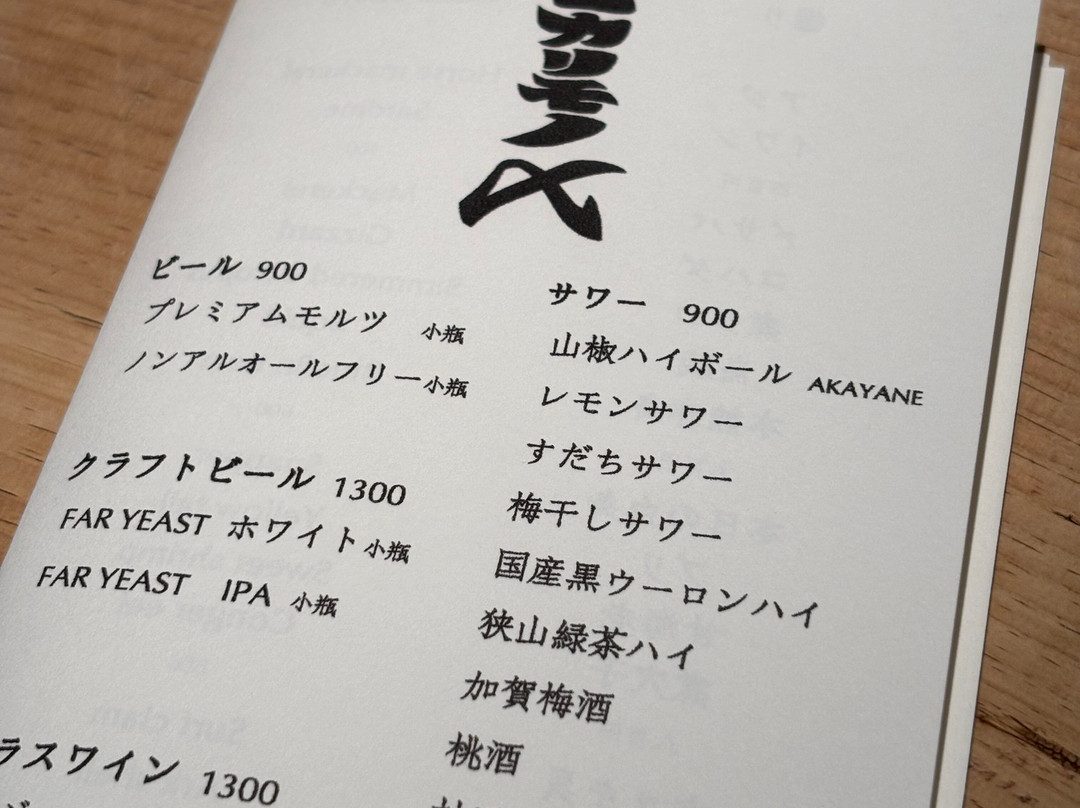 カリモノ
〆
ビール 900
プレミアムモルツ 小瓶
ノンアルオールフリー小瓶
クラフトビール 1300
FAR YEAST ホワイト小瓶
FAR YEAST IPA 小瓶
ラスワイン 1300
サワー 900
山椒ハイボール AKAYANE
レモンサワー
すだちサワー
梅干しサワー
国産黒ウーロンハイ
狭山緑茶ハイ
加賀梅酒
桃酒